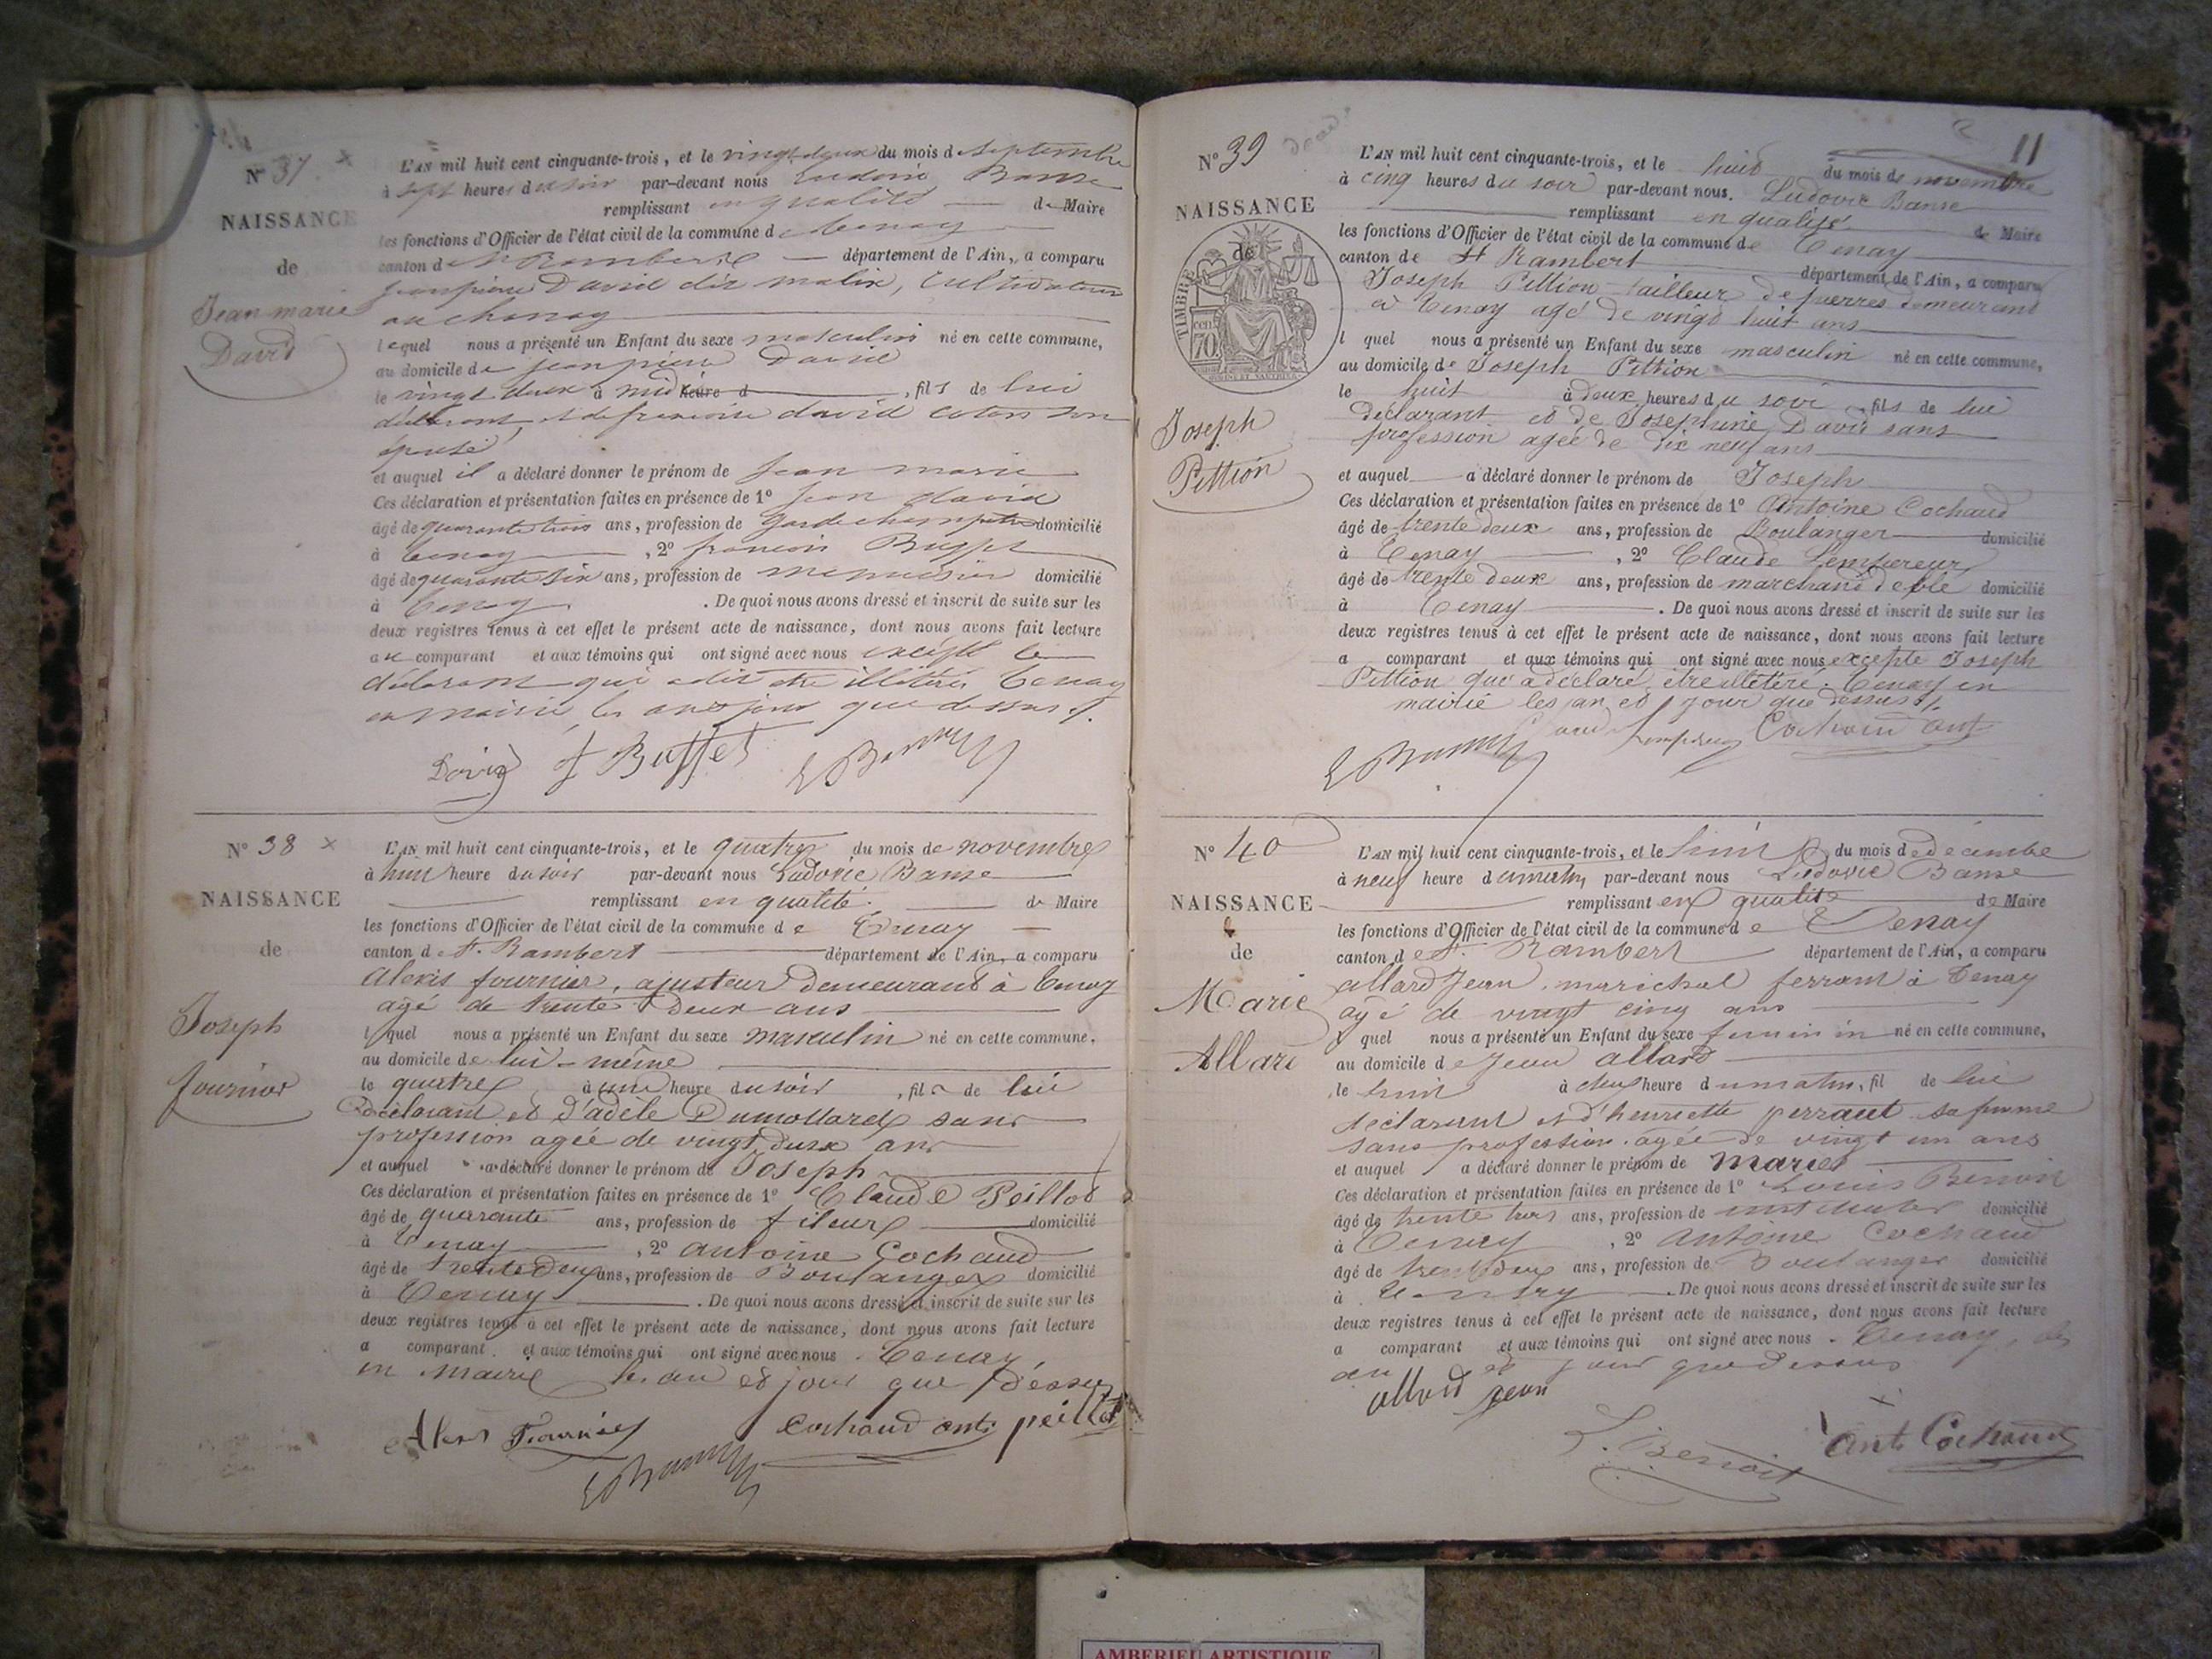 N° 37
NAISSANCE
de
Jean marie
David
L'AN mil huit cent cinquante-trois, et le vingt deux du mois d septembre
à sept heures du soir par-devant nous Ludovic Banse
remplissant en qualité de Maire
les fonctions d'Officier de l'état civil de la commune d Tenay
canton de St Rambert département de l'Ain, a comparu
jean pierre David dit malin, cultivateur
au chanay
lequel nous a présenté un Enfant du sexe masculin né en cette commune,
au domicile de jean pierre David
le vingt deux à midi heure d , fils de lui
déclarant et de françoise david son
épuse
et auquel il a déclaré donner le prénom de jean marie
Ces déclaration et présentation faites en présence de 1° jean david
âgé de quarante trois ans, profession de garde champetre domicilié
à Tenay , 2° francois Buffet
âgé de quarante six ans, profession de menuisier domicilié
à Tenay . De quoi nous avons dressé et inscrit de suite sur les
deux registres tenus à cet effet le présent acte de naissance, dont nous avons fait lecture
au comparant et aux témoins qui ont signé avec nous excepté le
déclarant qui a dit etre illétéré Tenay
en mairie les an et jour que dessus.
David f Buffet L Banse
N° 38
NAISSANCE
de
Joseph
fournier
L'AN mil huit cent cinquante-trois, et le quatre du mois de novembre
à huit heure du soir par-devant nous Ludovic Banse
remplissant en qualité de Maire
les fonctions d'Officier de l'état civil de la commune de Tenay
canton de St. Rambert département de l'Ain, a comparu
Alexis fournier, ajusteur demeurant à Tenay
agé de trente deux ans
l quel nous a présenté un Enfant du sexe masculin né en cette commune,
au domicile de lui-même
le quatre à une heure du soir , fils de lui
Déclarant et d'adèle Dumollard sans
profession agée de vingt deux ans
et auquel a déclaré donner le prénom de Joseph
Ces déclaration et présentation faites en présence de 1° Claude Peillod
âgé de quarante ans, profession de fileur domicilié
à Tenay , 2° antoine Cochaud
âgé de trente deux ans, profession de Boulanger domicilié
à Tenay . De quoi nous avons dressé et inscrit de suite sur les
deux registres tenus à cet effet le présent acte de naissance, dont nous avons fait lecture
a comparant et aux témoins qui ont signé avec nous. Tenay,
en mairie le. an et jour que dessus
Alexis Fournier Cochaud ant. peillod
L Banse
11
N° 39
NAISSANCE
de
TIMBRE
cen.
70
Joseph
Pittion
L'AN mil huit cent cinquante-trois, et le huit du mois de novembre
à cinq heures du soir par-devant nous. Ludovic Banse
remplissant en qualité de Maire
les fonctions d'Officier de l'état civil de la commune de Tenay
canton de St Rambert département de l'Ain, a comparu
Joseph Pittion tailleur de pierres demeurant
à Tenay agé de vingt huit ans
l quel nous a présenté un Enfant du sexe masculin né en cette commune,
au domicile de Joseph Pittion
le huit à deux heures du soir , fils de lui
déclarant et de Josephine David sans
profession agée de dix neuf ans
et auquel a déclaré donner le prénom de Joseph
Ces déclaration et présentation faites en présence de 1° Antoine Cochaud
âgé de trente deux ans, profession de Boulanger domicilié
à Tenay , 2° Claude Lempereur
âgé de trente deux ans, profession de marchand de blé domicilié
à Tenay . De quoi nous avons dressé et inscrit de suite sur les
deux registres tenus à cet effet le présent acte de naissance, dont nous avons fait lecture
a comparant et aux témoins qui ont signé avec nous excepte Joseph
Pittion qui a déclaré etre illetéré. Tenay en
mairie les an et jour que dessus
Lempereur Cochaud ant
L Banse
N° 40
NAISSANCE
de
Marie
Allard
L'AN mil huit cent cinquante-trois, et le huit du mois de decembre
à neuf heure du matin par-devant nous Ludovic Banse
remplissant en qualité de Maire
les fonctions d'Officier de l'état civil de la commune de Tenay
canton de St. Rambert département de l'Ain, a comparu
allard Jean, marichal ferrant à Tenay
agé de vingt cinq ans
l quel nous a présenté un Enfant du sexe feminin né en cette commune,
au domicile de Jean allard
le huit à deux heure du matin, fil de lui
declarant et d'henriette perraut sa femme
sans profession. agée de vingt un ans
et auquel a déclaré donner le prénom de Marie
Ces déclaration et présentation faites en présence de 1° Louis Benoit
âgé de trente trois ans, profession de instituteur domicilié
à Tenay , 2° Antoine Cochaud
âgé de trente deux ans, profession de Boulanger domicilié
à Tenay . De quoi nous avons dressé et inscrit de suite sur les
deux registres tenus à cet effet le présent acte de naissance, dont nous avons fait lecture
a comparant et aux témoins qui ont signé avec nous. Tenay, les
an et jour que dessus
allard jean
L. Benoit Ant. Cochaud
AMBERIEU ARTISTIQUE